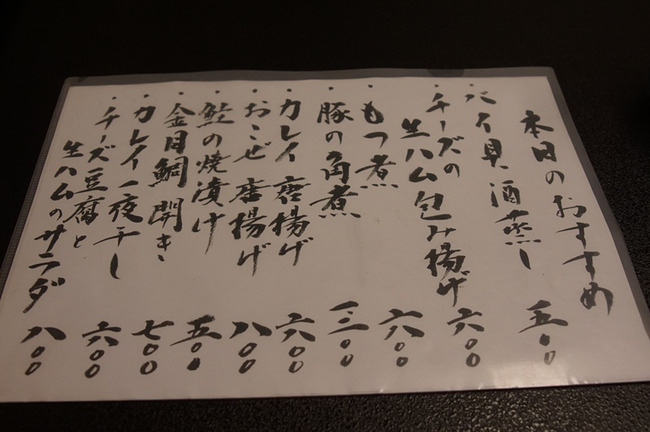 本日のおすすめ
・バイ貝 酒蒸し 五〇〇
・チーズの
生ハム包み揚げ 六〇〇
・もつ煮 六〇〇
・豚の角煮 三〇〇
・カレイ 唐揚げ 六〇〇
・おこぜ 唐揚げ 八〇〇
・鮭の焼漬け 五〇〇
・金目鯛 開き 七〇〇
・カレイ 一夜干し 六〇〇
・チーズ豆腐と
生ハムのサラダ 八〇〇